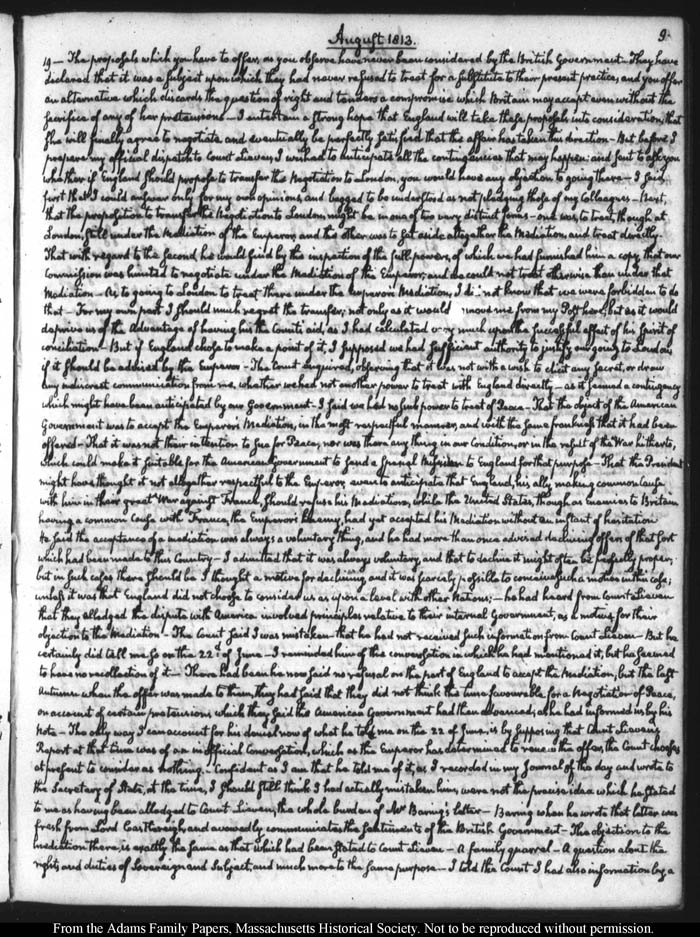 August 1813.
9.
19 — The proposals which you have to offer, as you observe have never been considered by the British Government — They have
declared that it was a subject upon which they had never refused to treat for a substitute to their present practice, and you offer
an alternative which discards the question of right and tenders a compromise which Britain may accept even without the
sacrifice of any of her pretensions — I entertain a strong hope that England will take these proposals into consideration, that
She will finally agree to negotiate and eventually be perfectly satisfied that the affair has taken this direction — But before I
prepare my official dispatch to Count Lieven, I wished to anticipate all the contingencies that may happen: and sent to ask you
whether if England should propose to transfer the Negotiation to London, you would have any objection to going there — I said,
first that I could answer only for my own opinions, and begged to be understood as not pledging those of my Colleagues — Next,
that the proposition to transfer the Negotiation to London, might be in one of two very distinct forms — one was, to treat, though at
London, still under the Mediation of the Emperor, and the other was to set aside altogether the Mediation, and treat directly.
That with regard to the second, he would find by the inspection of the full powers, of which we had furnished him a copy, that our
Commission was limited to negotiate under the Mediation of the Emperor; and we could not treat otherwise than under that
Mediation — As to going to London to treat there under the Emperor's Mediation, I did not know that we were forbidden to do
that — For my own part I should much regret the transfer; not only as it would move me from my Post here, but as it would
deprive us of the Advantage of having his the Count's aid, as I had calculated very much upon the successful effect of his Spirit of
conciliation — But if England chose to make a point of it, I supposed we had sufficient authority to justify our going to London
if it should be advised by the Emperor — The Count enquired, observing that it was not with a wish to elicit any secret, or draw
any indiscreet communication from me, whether we had not another power to treat with England directly — as it seemed a contingency
which might have been anticipated by our Government — I said we had no such power to treat of Peace — That the object of the American
Government was to accept the Emperor's Mediation, in the most respectful manner, and with the same frankness that it had been
offered — That it was not their intention to sue for Peace, nor was there any thing in our Condition, or in the result of the War hitherto,
which could make it suitable for the American Government to send a special Mission to England for that purpose — That the President
might have thought it not altogether respectful to the Emperor, even to anticipate that England, his ally, making common Cause
with him in their great War against France, should refuse his Mediation, while the United States, though as Enemies to Britain
having a common Cause with France, the Emperor's Enemy, had yet accepted his Mediation without an instant of hesitation
He said the acceptance of a mediation was always a voluntary thing, and he had more than once advised declining offers of that sort
which had been made to this Country — I admitted that it was always voluntary, and that to decline it might often be perfectly proper;
but in such cases there should be I thought a motive for declining, and it was scarcely possible to conceive such a motive in this case,
unless it was that England did not choose to consider us as upon a level with other Nations; — he had heard from Count Lieven
that they alledged the dispute with America involved principles relative to their internal Government, as a motive for their
objection to the Mediation — The Count said I was mistaken — that he had not received such information from Count Lieven — But he
certainly did tell me so on the 22d of June — I reminded him of the conversation in which he had mentioned it, but he seemed
to have no recollection of it — There had been he now said no refusal on the part of England to accept the Mediation, but the last
Autumn when the offer was made to them, they had said that they did not think the time favourable for a Negotiation of Peace,
on account of certain pretensions which they said the American Government had then advanced; as he had informed us by his
Note — The only way I can account for his denial now of what he told me on the 22 of June, is by supposing that Count Lieven's
Report at that time was of an inofficial Conversation, which as the Emperor has determined to renew the offer, the Count chooses
at present to consider as nothing. — Confident as I am that he told me of it, as I recorded in my Journal of the day and wrote to
the Secretary of State, at the time, I should still think I had actually mistaken him, were not the precise idea which he stated
to me as having been alledged to Count Lieven, the whole burden of Mr Baring's letter — Baring when he wrote that letter was
fresh from Lord Castlereagh, and avowedly communicates the sentiments of the British Government — The objection to the
mediation there, is exactly the same as that which had been stated to Count Lieven — A family quarrel — A question about the
rights and duties of Sovereign and Subject, and much more to the same purpose — I told the Count I had also information by a
From the Adams Family Papers, Massachusetts Historical Society. Not to be reproduced without permission.